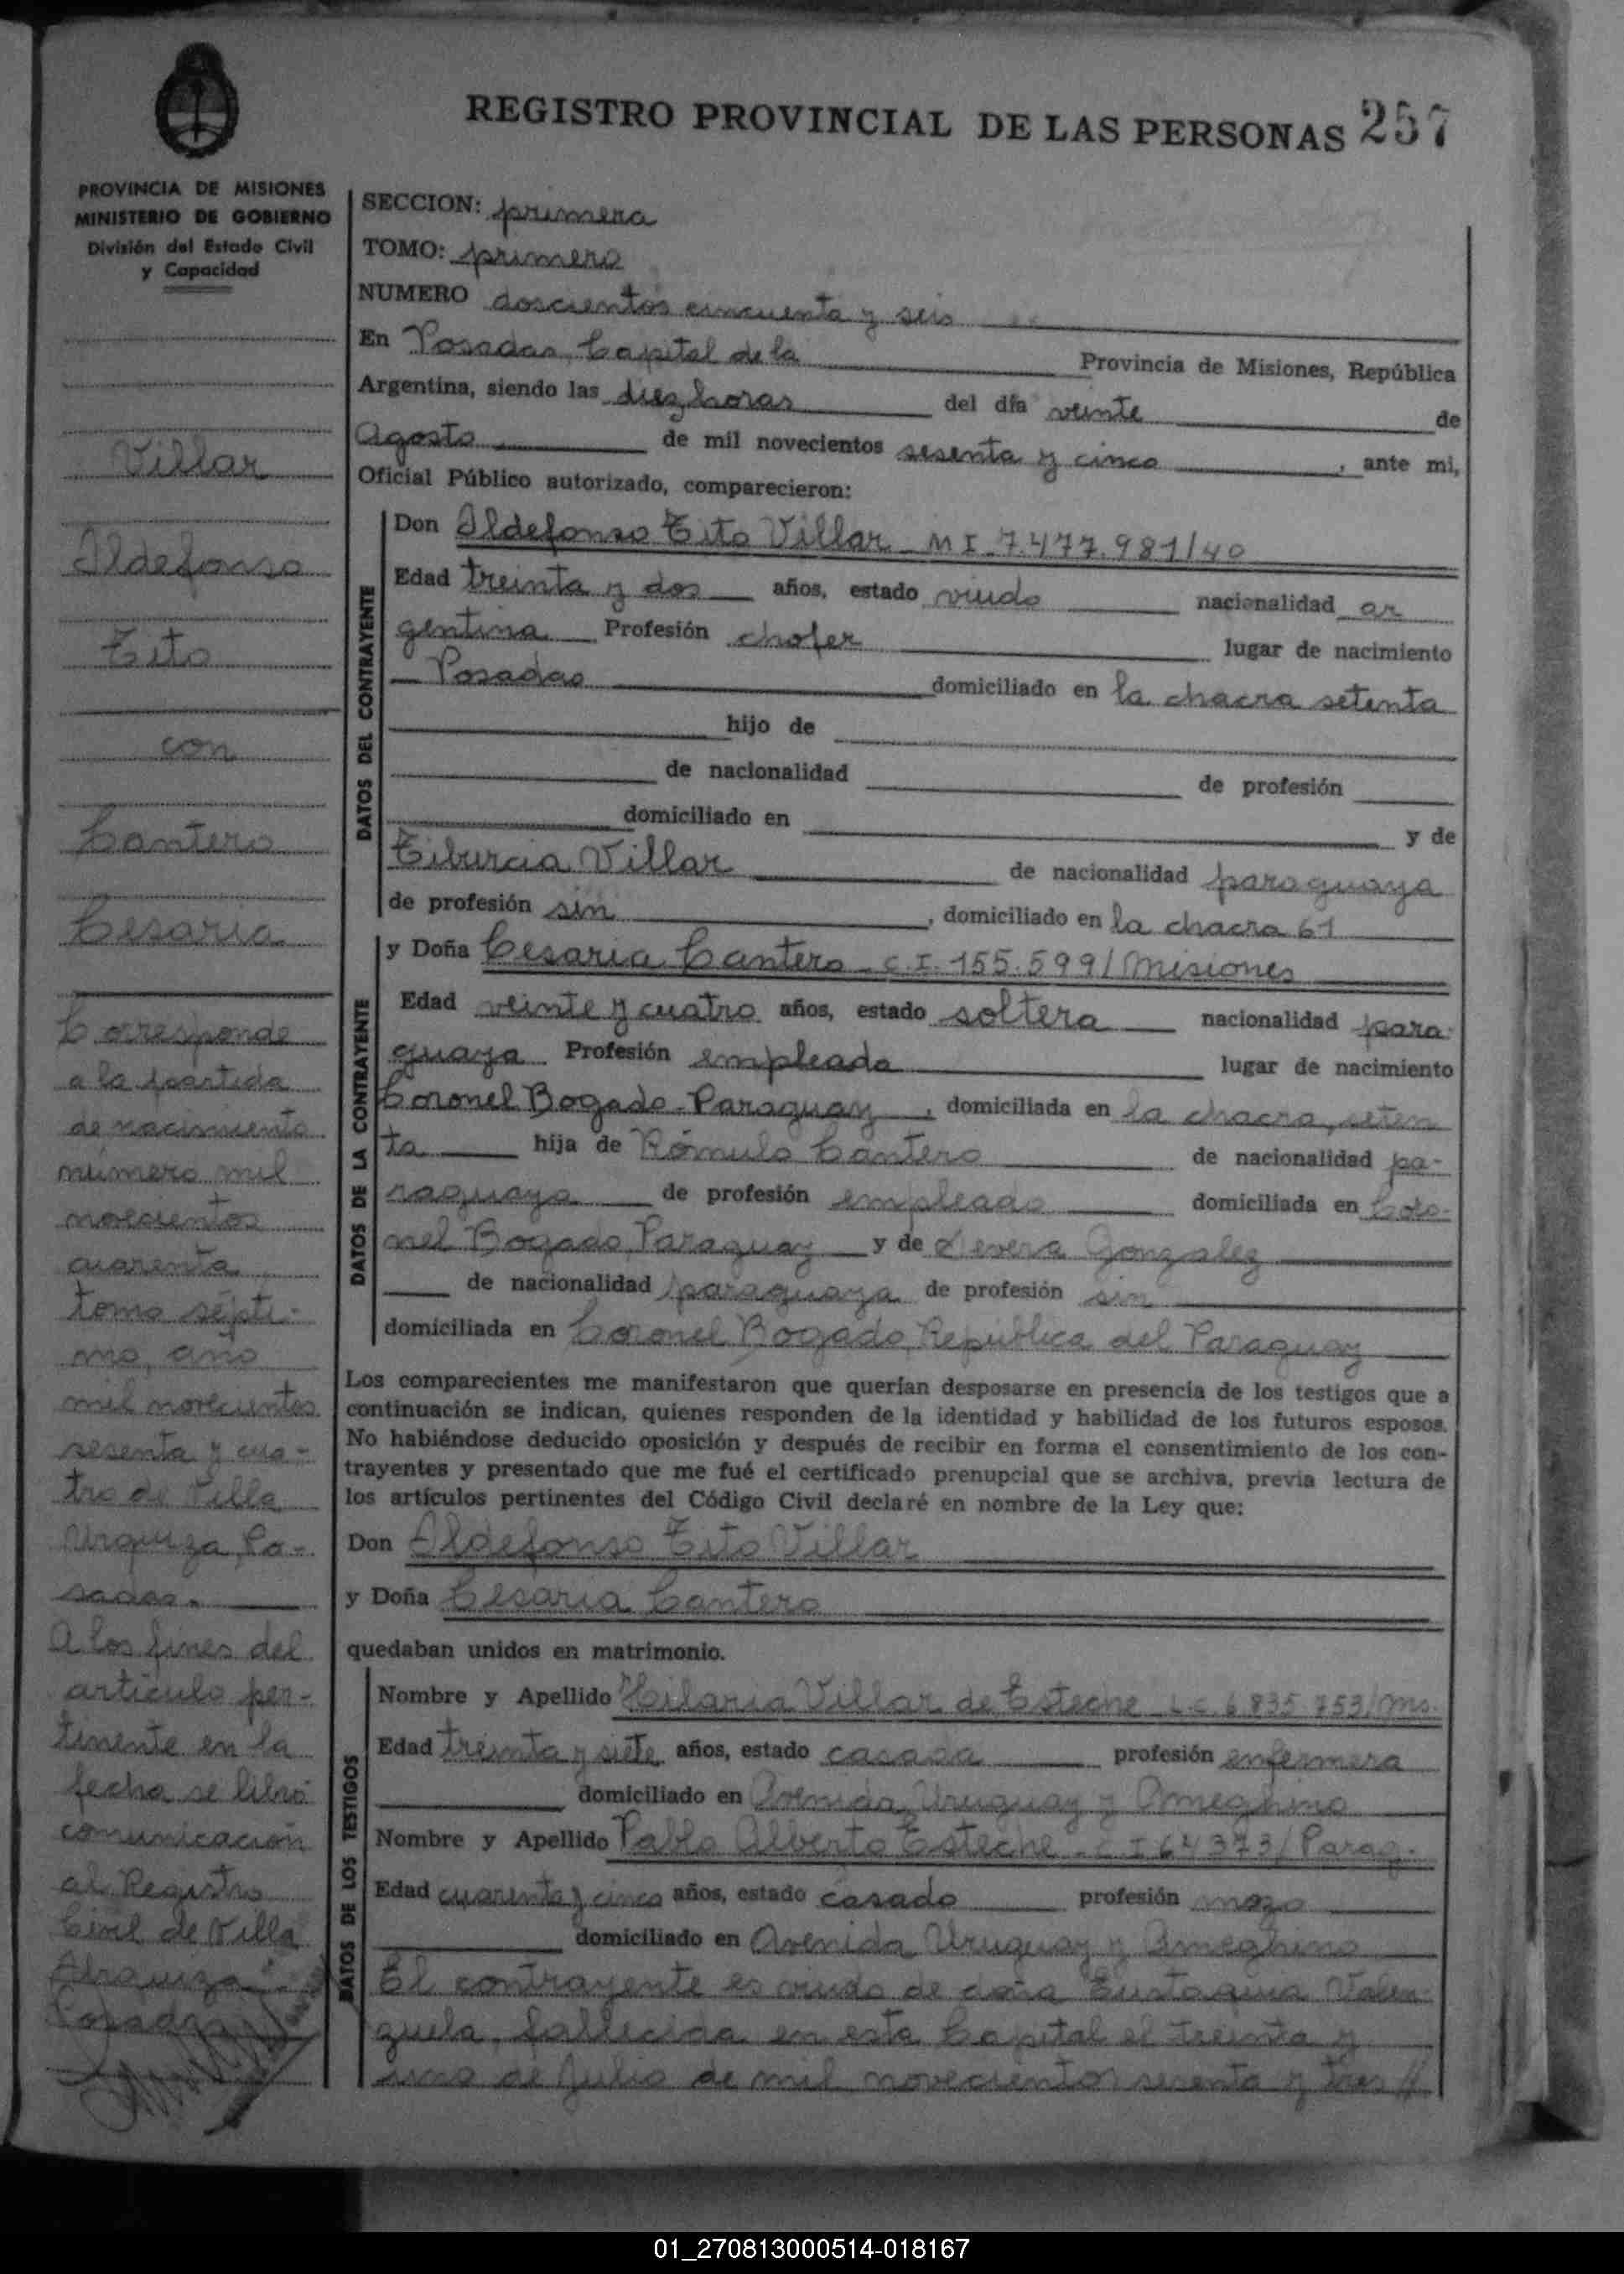 REGISTRO PROVINCIAL DE LAS PERSONAS 257
PROVINCIA DE MISIONES
MINISTERIO DE GOBIERNO
División del Estado Civil
y Capacidad
Villar
Ildefonso
Tito
con
Cantero
Cesaria
Corresponde
a la partida
de nacimiento
número mil
novecientos
cuarenta
tomo sépti-
mo, año
mil novecientos
sesenta y cua-
tro de Villa
Urquiza, Po-
sadas.
A los fines del
artículo per-
tinente en la
fecha se libró
comunicación
al Registro
Civil de Villa
Urquiza
Posadas
SECCION: primera
TOMO: primero
NUMERO doscientos cincuenta y seis
En Posadas, Capital de la Provincia de Misiones, República
Argentina, siendo las diez horas del día veinte de
Agosto de mil novecientos sesenta y cinco, ante mi,
Oficial Público autorizado, comparecieron:
DATOS DEL CONTRAYENTE
Don Ildefonso Tito Villar - M I - 7.477.981/40
Edad treinta y dos años, estado viudo nacionalidad ar
gentina Profesión chofer lugar de nacimiento
Posadas domiciliado en la chacra setenta
hijo de
de nacionalidad de profesión
domiciliado en y de
Tiburcia Villar de nacionalidad paraguaya
de profesión sin, domiciliado en la chacra 61
DATOS DE LA CONTRAYENTE
y Doña Cesaria Cantero - C.I. 155.599/Misiones
Edad veinte y cuatro años, estado soltera nacionalidad para-
guaya Profesión empleada lugar de nacimiento
Coronel Bogado - Paraguay, domiciliada en la chacra, seten
ta hija de Rómulo Cantero de nacionalidad pa-
raguaya de profesión empleado domiciliada en Coro-
nel Bogado, Paraguay y de Gonzalez
de nacionalidad paraguaya de profesión sin
domiciliada en Coronel Bogado, República del Paraguay
Los comparecientes me manifestaron que querían desposarse en presencia de los testigos que a
continuación se indican, quienes responden de la identidad y habilidad de los futuros esposos.
No habiéndose deducido oposición y después de recibir en forma el consentimiento de los con-
trayentes y presentado que me fué el certificado prenupcial que se archiva, previa lectura de
los artículos pertinentes del Código Civil declaré en nombre de la Ley que:
Don Ildefonso Tito Villar
y Doña Cesaria Cantero
quedaban unidos en matrimonio.
DATOS DE LOS TESTIGOS
Nombre y Apellido Hilaria Villar de Esteche L.C. 6.835.753/Ms.
Edad treinta y siete años, estado casada profesión enfermera
domiciliado en Avenida Uruguay y Ameghino
Nombre y Apellido Pablo Alberto Esteche - C I 64373/Parag.
Edad cuarenta y cinco años, estado casado profesión mozo
domiciliado en Avenida Uruguay y Ameghino
El contrayente es viudo de doña Eustaquia Valen-
zuela, fallecida en esta Capital el treinta y
uno de Julio de mil novecientos sesenta y tres //
01_270813000514-018167